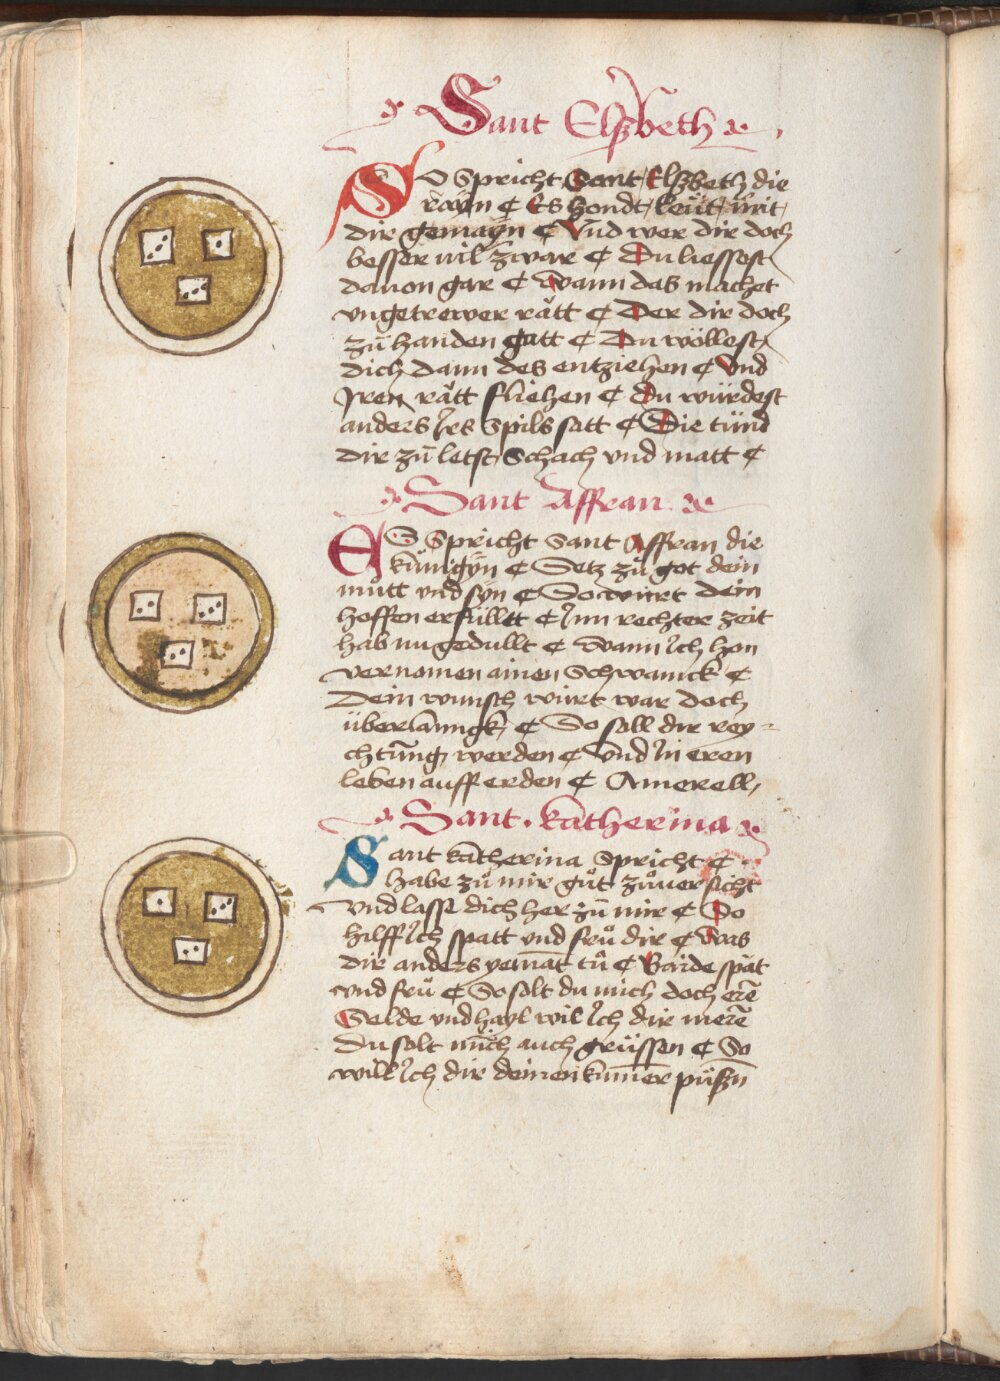 Sant Elßbeth
SO Spricht Sant Elßbeth die
rayn ¢ Es hondt leüt mit
dir gemayn ¢ Vnd wer dir doch
besser vil zwar ¢ Du liessest
dauon gar ¢ Wann das machet
vngetrewer rätt ¢ Der dir doch
zů handen gatt ¢ Du wöllest
dich dann des entziehen ¢ Vnd
Iren rätt fliehen ¢ Du würdest
anders Irs Spils satt ¢ Die tünd
dir zů letst Schach vnd matt ¢
Sant Affran
ES Spricht Sant Affran die
künigÿn ¢ Setz zů got dein
můtt vnd sÿn ¢ So würt dein
hoffen erfülltt ¢ Inn rechter zeit
hab nu gedullt ¢ Wann Ich hon
vernomen ainen Schwanck ¢
Dein wunsch würt war doch
überlanngk ¢ So soll dir rey-
chtung werden ¢ Vnd In eren
leben auff erden ¢ Amerell
Sant katherina
Sant katherina Spricht ¢
habe zů mir gůt zůuersicht
vnd lasst dich her zů mir ¢ So
hilff Ich spatt vnd frů dir ¢ Was
dir anders yemāt tů ¢ Baide spät
vnd frů ¢ So solt du mich doch erē
Selde vnd hayl wil Ich dir merē
Du solt mich auch grüssen ¢ So
will Ich dir deinen kum̄er püßn̄